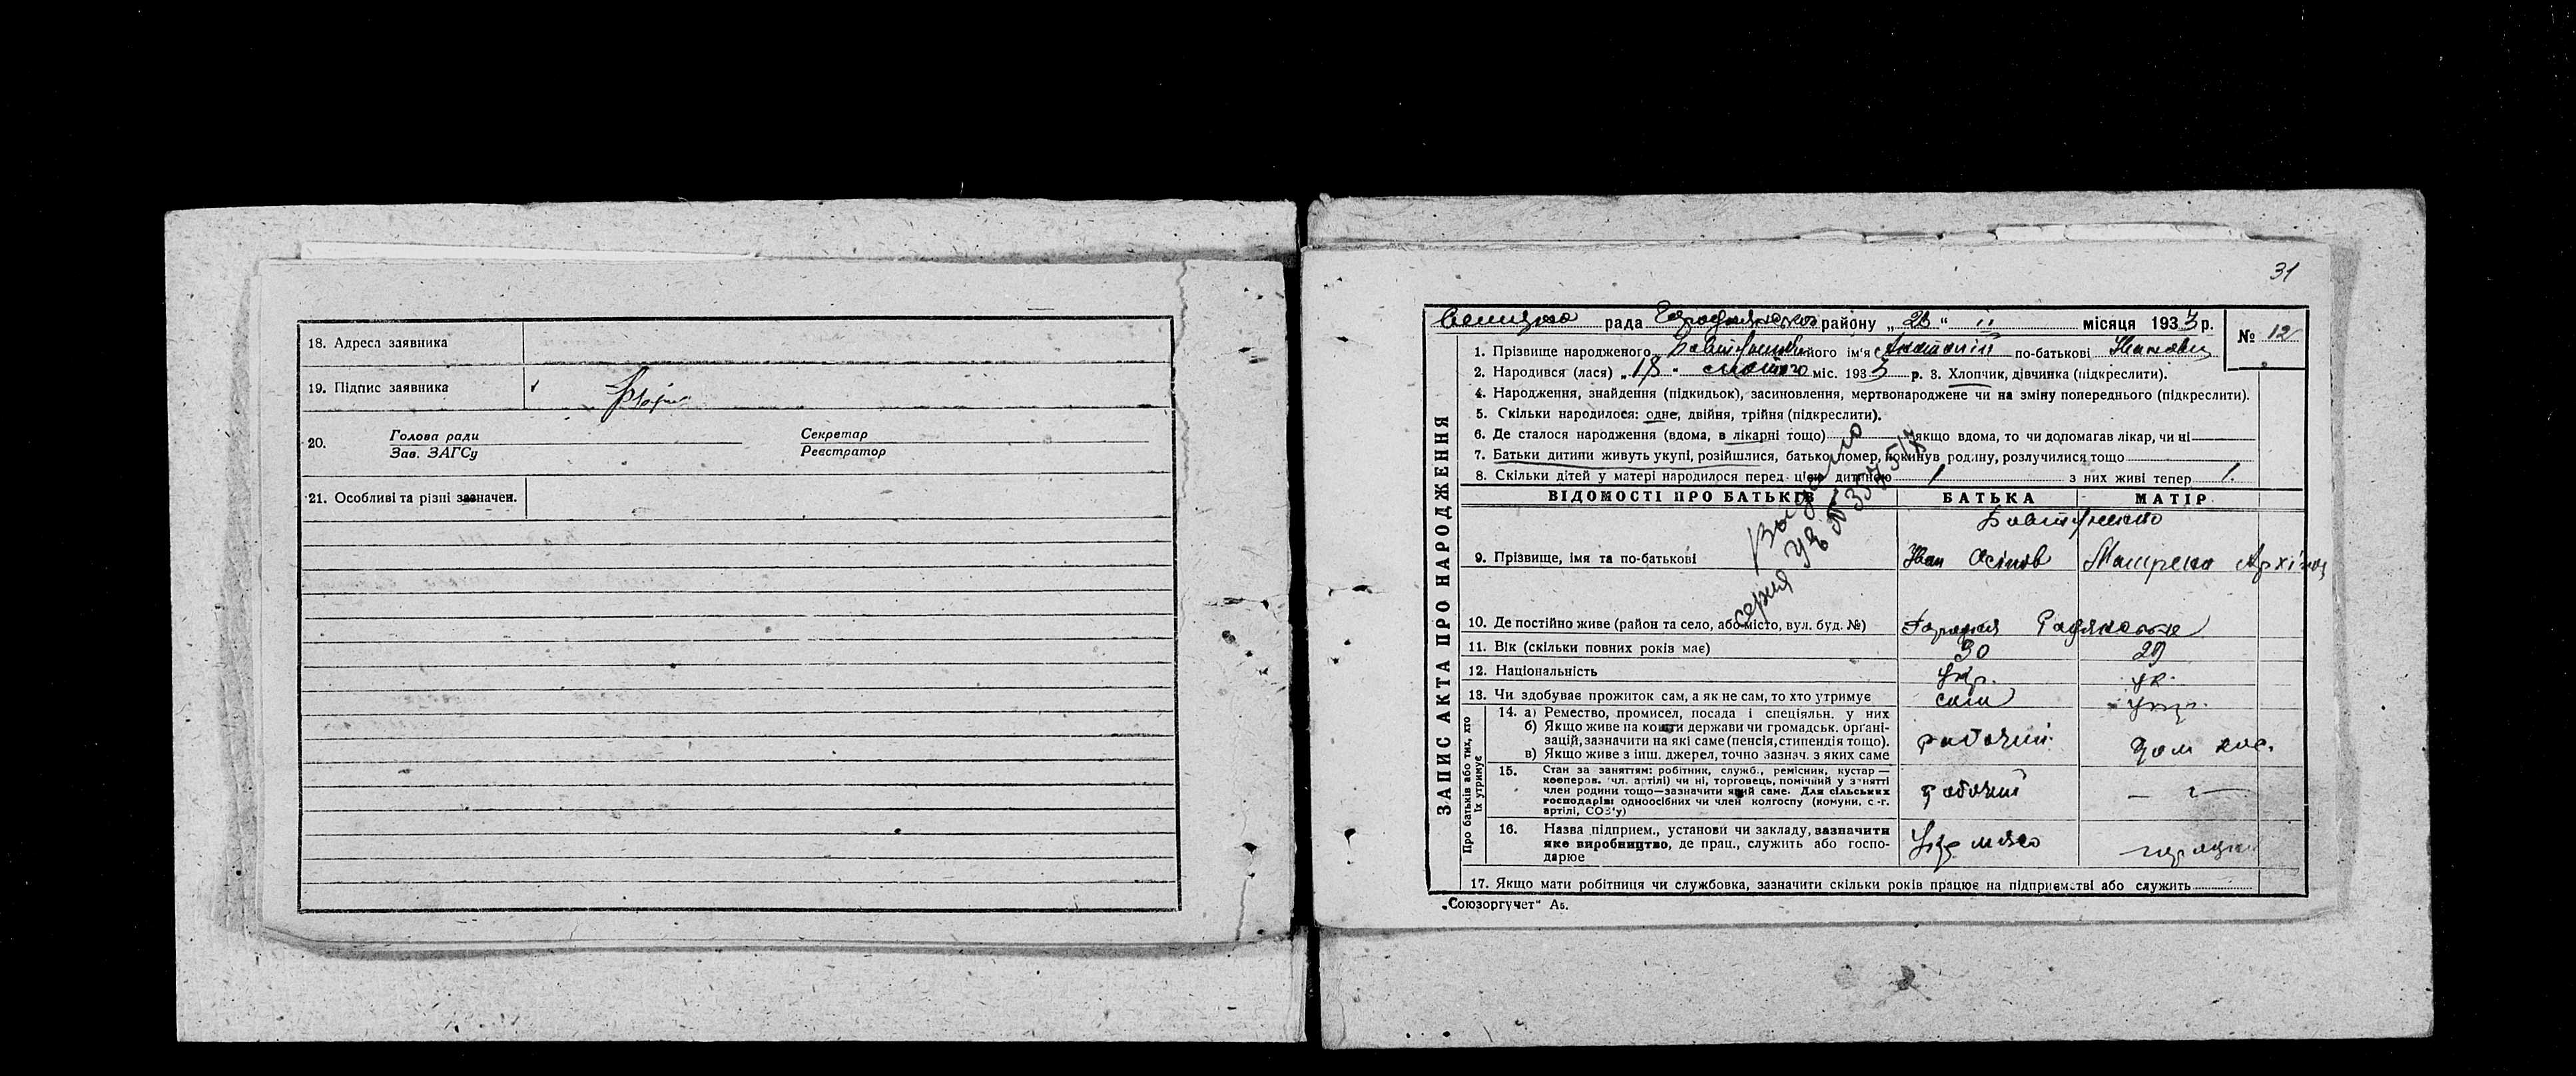 18. Адреса заявника
19. Підпис заявника
20. Голова ради Секретар
Зав. ЗАГСу Реєстратор
21. Особливі та різні зазначен.
31
рада району „23“ II місяця 1933 р.
№ 12
1. Прізвище народженого його ім'я Анатолій по-батькові Іванович
2. Народився (лася) „18“ лютого міс. 1933 р. 3. Хлопчик, дівчинка (підкреслити).
4. Народження, знайдення (підкидьок), засиновлення, мертвонароджене чи на зміну попереднього (підкреслити).
5. Скільки народилося: одне, двійня, трійня (підкреслити).
6. Де сталося народження (вдома, в лікарні тощо) якщо вдома, то чи допомагав лікар, чи ні
7. Батьки дитини живуть укупі, розійшлися, батько помер, покинув родину, розлучилися тощо
8. Скільки дітей у матері народилося перед цією дитиною 1 з них живі тепер 1.
ЗАПИС АКТА ПРО НАРОДЖЕННЯ
ВІДОМОСТІ ПРО БАТЬКІВ БАТЬКА МАТІР
Видано
серия УБ
9. Прізвище, імя та по-батькові Іван Осіпов
10. Де постійно живе (район та село, або місто, вул. буд. №)
11. Вік (скільки повних років має) 30 29
12. Національність Укр. ук.
13. Чи здобуває прожиток сам, а як не сам, то хто утримує сам
Про батьків або тих, хто їх утримує
14. а) Ремество, промисел, посада і спеціяльн. у них
б) Якщо живе на кошти держави чи громадськ. організацій, зазначити на які саме (пенсія, стипендія тощо).
в) Якщо живе з інш. джерел, точно зазнач. з яких саме
рабочий дом хоз.
15. Стан за заняттям: робітник, служб., ремісник, кустар —
кооперов. (чл. артілі) чи ні, торговець, помічний у занятті
член родини тощо—зазначити який саме. Для сільських
господарів: одноосібних чи член колгоспу (комуни, с.-г.
артілі, СОЗ'у)
рабочий
16. Назва підприєм., установи чи закладу, зазначити
яке виробництво, де прац., служить або господарює
Укр мясо
17. Якщо мати робітниця чи службовка, зазначити скільки років працює на підприємстві або служить
„Союзоргучет“ А5.